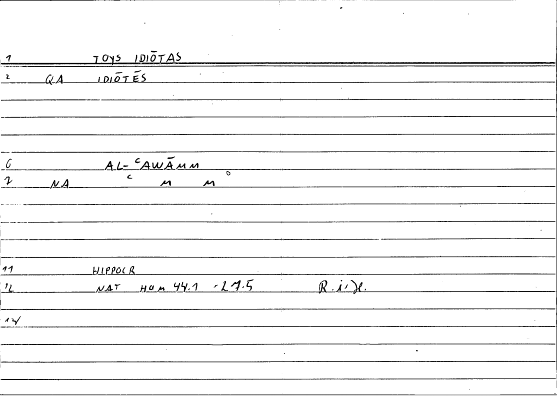 1 TOYS IDIŌTAS
2 QA IDIŌTĒS
6 AL-ʿAWĀMM
7 NA ʿ M M
11 HIPPOCR
12 NAT HOM 44.1 -27.5
14